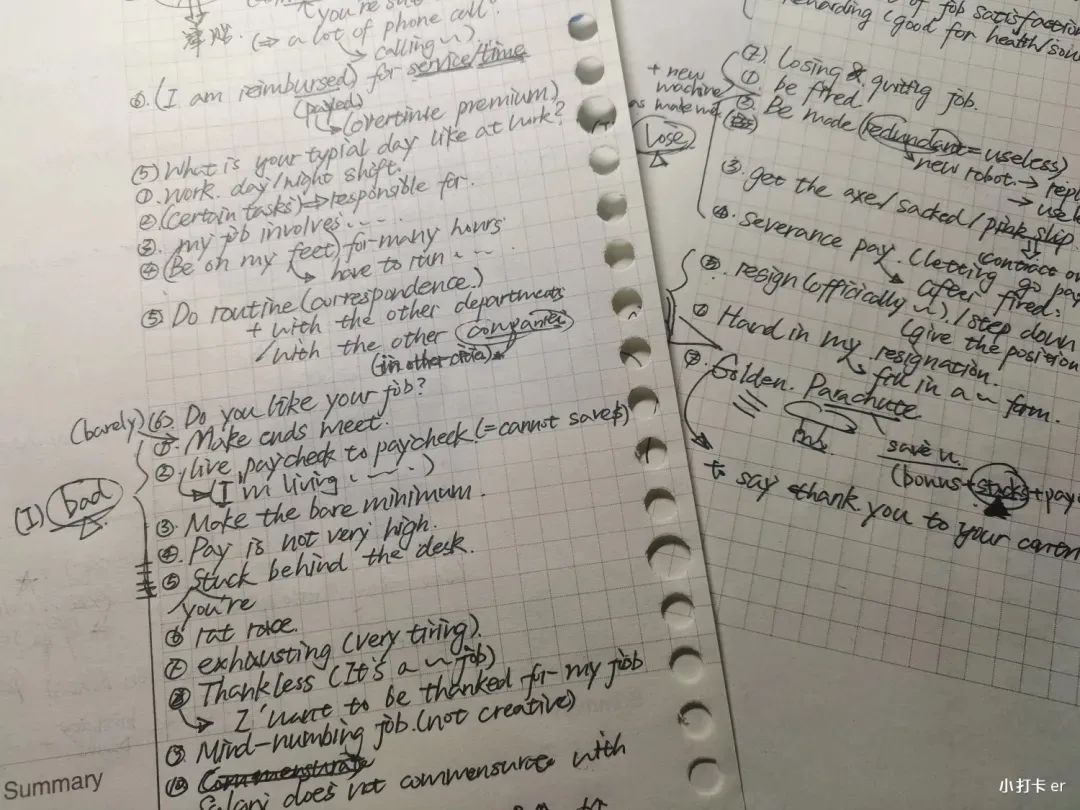 you're su
津贴. (⇒ a lot of phone call?
calling ~)
⑥. (I am reimbursed) for service/time
(payed)
(overtime premium)
(5) What is your typial day like at work?
① work day/night shift.
②(certain tasks)⇒responsible for.
③. my job involves. . . . .
④ (Be on my feet) for many hours
have to run . . .
⑤. Do routine (correspondence.)
+ with the other departments
/with the other companies
(in other cities)
(barely) (6. Do you like your job?
①. Make ends meet.
②. live paycheck to paycheck (=cannot save$)
(I'm living . ~ . )
(I) bad
③. Make the bare minimum.
④. Pay is not very high.
⑤ Stuck behind the desk.
you're
⑥ rat race.
⑦ exhausting (very tiring).
⑧ Thankless (It's a ~ job)
I want to be thanked for my job
⑨. Mind-numbing job. (not creative)
⑩ Commensurate
Salary does not commensurate with
Summary
of job satisfaction
rewarding (good for health/soul
(7). losing & quiting job.
① be fired.
+ new machine
②. Be made (redundant = useless)
lose
new robot. → repl
→ usele
③. get the axe/ sacked / pink slip
(contract
④. severance pay. (letting go pay
after fired.
⑤. resign (officially ~). / step down
(give the position
Hand in my resignation.
fill in a ~ form.
⑦. Golden. Parachute
save u.
(bonus+stocks+pay
to say thank you to your
小打卡 er